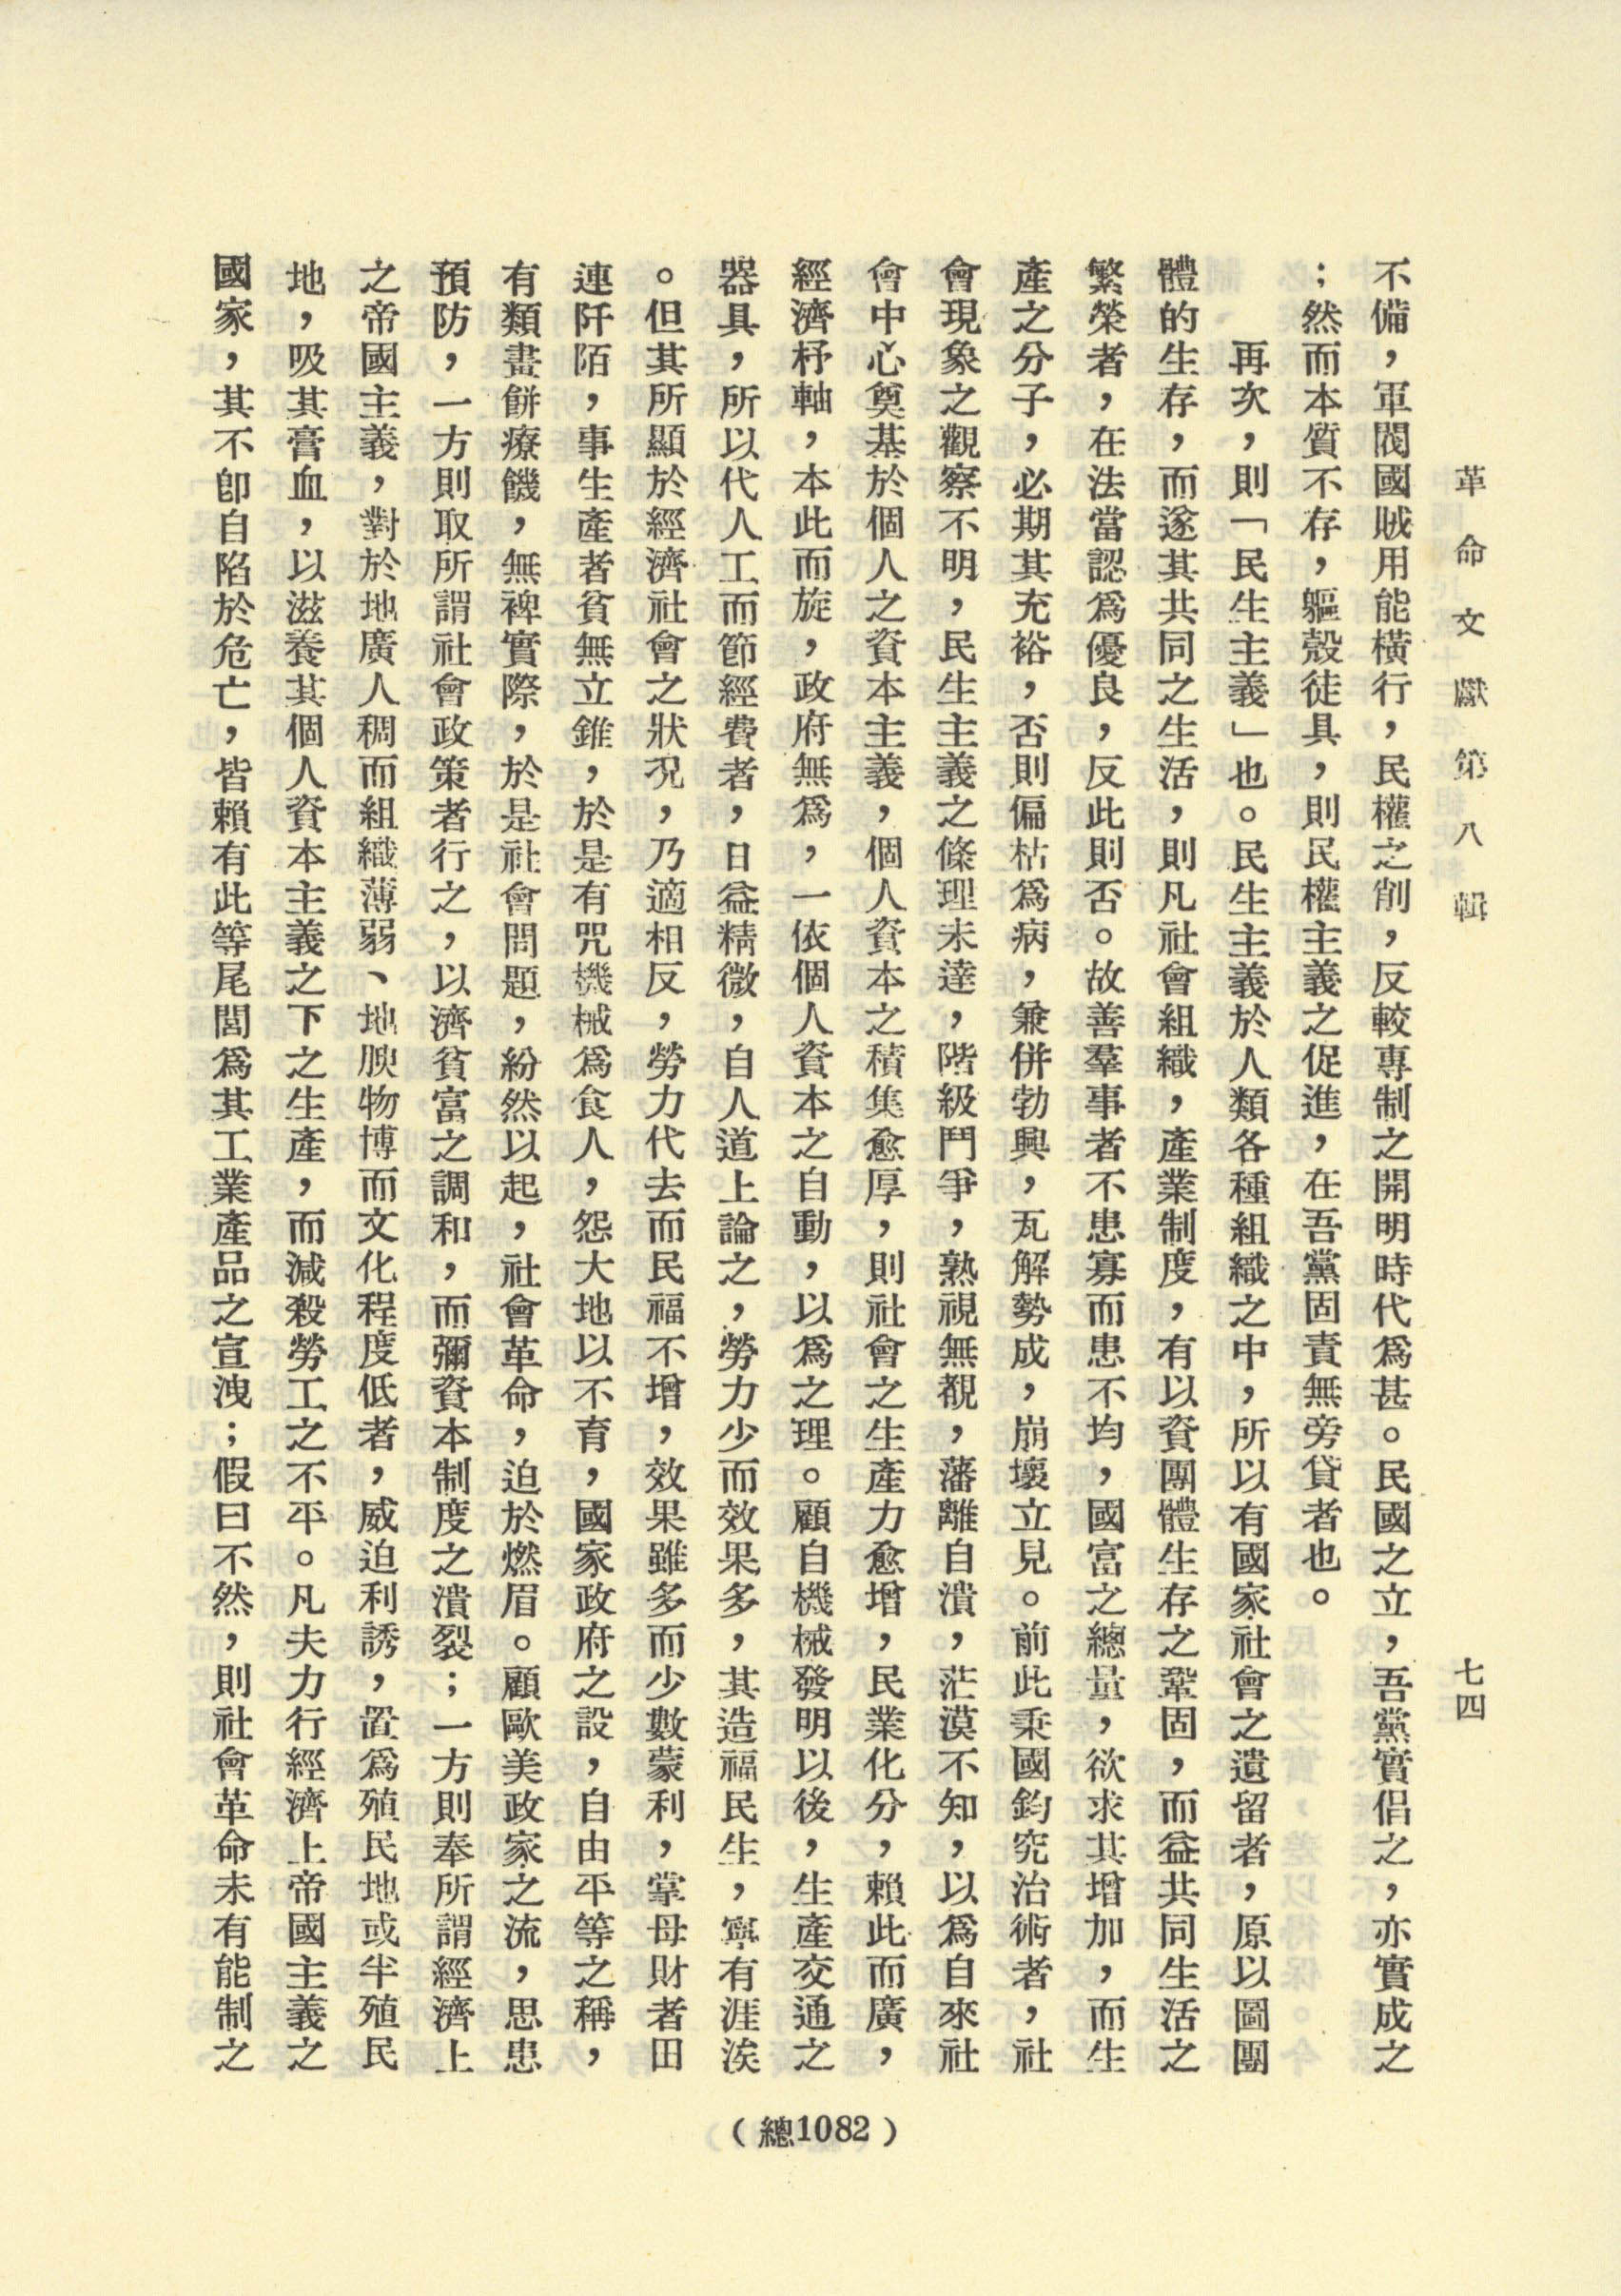 革命文獻第八輯
七四
不備，軍閥國賊用能橫行，民權之削，反較專制之開明時代爲甚。民國之立，吾黨實倡之，亦實成之
；然而本質不存，軀殼徒具，則民權主義之促進，在吾黨固責無旁貸者也。
再次，則「民生主義」也。民生主義於人類各種組織之中，所以有國家社會之遺留者，原以圖團
體的生存，而遂其共同之生活，則凡社會組織，產業制度，有以資團體生存之鞏固，而益共同生活之
繁榮者，在法當認爲優良，反此則否。故善羣事者不患寡而患不均，國富之總量，欲求其增加，而生
產之分子，必期其充裕，否則偏枯爲病，兼併勃興，瓦解勢成，崩壞立見。前此秉國鈞究治術者，社
會現象之觀察不明，民生主義之條理未達，階級鬥爭，熟視無覩，藩離自潰，茫漠不知，以爲自來社
會中心奠基於個人之資本主義，個人資本之積集愈厚，則社會之生產力愈增，民業化分，賴此而廣，
經濟杼軸，本此而旋，政府無爲，一依個人資本之自動，以爲之理。顧自機械發明以後，生產交通之
器具，所以代人工而節經費者，日益精微，自人道上論之，勞力少而效果多，其造福民生，寧有涯涘
。但其所顯於經濟社會之狀況，乃適相反，勞力代去而民福不增，效果雖多而少數蒙利，掌母財者田
連阡陌，事生產者貧無立錐，於是有咒機械爲食人，怨大地以不育，國家政府之設，自由平等之稱，
有類畫餅療饑，無裨實際，於是社會問題，紛然以起，社會革命，迫於燃眉。顧歐美政家之流，思患
預防，一方則取所謂社會政策者行之，以濟貧富之調和，而彌資本制度之潰裂；一方則奉所謂經濟上
之帝國主義，對於地廣人稠而組織薄弱、地腴物博而文化程度低者，威迫利誘，置爲殖民地或半殖民
地，吸其膏血，以滋養其個人資本主義之下之生產，而減殺勞工之不平。凡夫力行經濟上帝國主義之
國家，其不卽自陷於危亡，皆賴有此等尾閭爲其工業產品之宣洩；假曰不然，則社會革命未有能制之
（總1082）